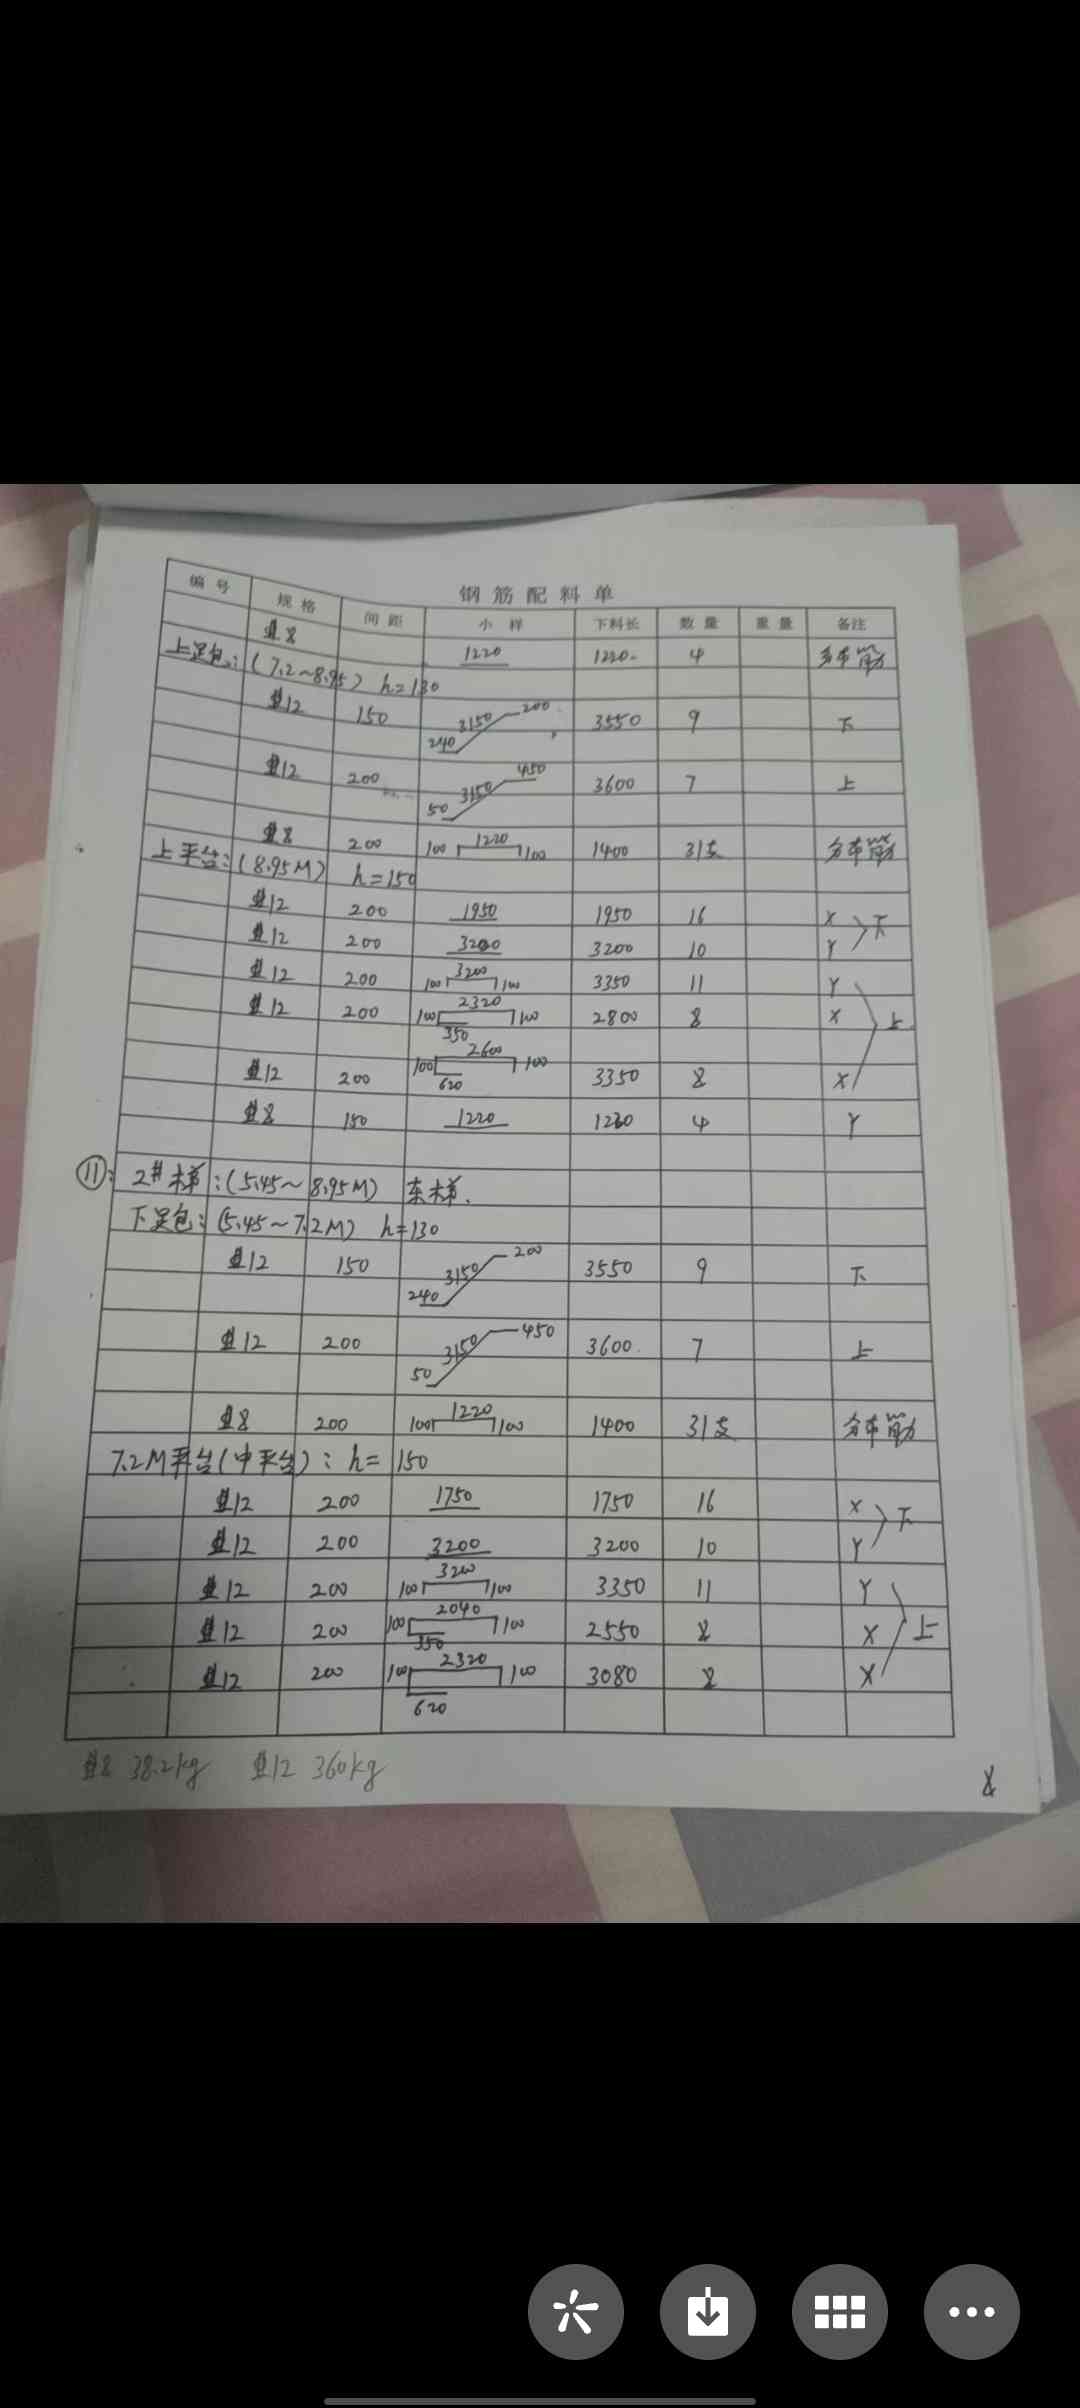 钢筋配料单
编号 规格 间距 小样 下料长 数量 重量 备注
⏄8 1220 1220 4 分布筋
上足包:(7.2~8.95) h=130
⏄12 150 240 3150 200 3550 9 下
⏄12 200 50 3150 450 3600 7 上
⏄8 200 100 1220 100 1400 31支 分布筋
上平台:(8.95M) h=150
⏄12 200 1950 1950 16 X
⏄12 200 3200 3200 10 Y 下
⏄12 200 100 3200 100 3350 11 Y
⏄12 200 100 2320 100 350 2800 8 X 上
⏄12 200 100 2600 100 620 3350 8 X
⏄8 150 1220 1220 4 Y
⑪: 2#梯:(5.45~8.95M) 东梯.
下足包:(5.45~7.2M) h=130
⏄12 150 240 3150 200 3550 9 下
⏄12 200 50 3150 450 3600 7 上
⏄8 200 100 1220 100 1400 31支 分布筋
7.2M平台(中平台): h=150
⏄12 200 1750 1750 16 X
⏄12 200 3200 3200 10 Y 下
⏄12 200 100 3200 100 3350 11 Y
⏄12 200 100 2040 100 350 2550 8 X 上
⏄12 200 100 2320 100 620 3080 8 X
⏄8 38.2kg ⏄12 360kg
8